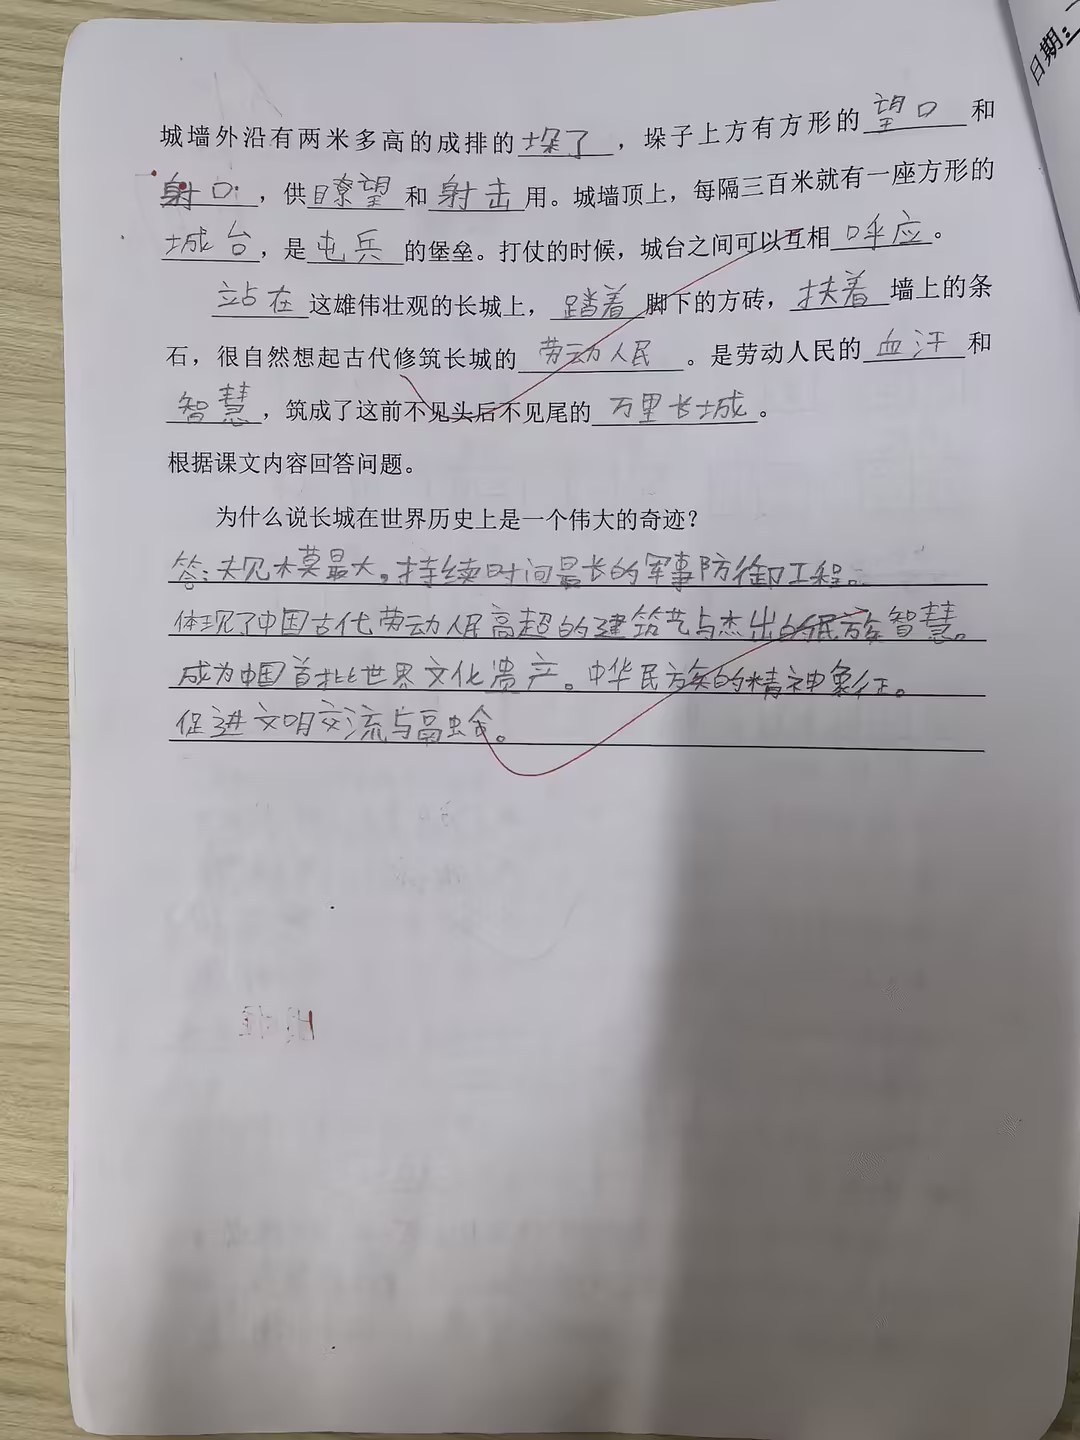 日期：
城墙外沿有两米多高的成排的垛了，垛子上方有方形的望口和
射口，供瞭望和射击用。城墙顶上，每隔三百米就有一座方形的
城台，是屯兵的堡垒。打仗的时候，城台之间可以互相呼应。
站在这雄伟壮观的长城上，踏着脚下的方砖，扶着墙上的条
石，很自然想起古代修筑长城的劳动人民。是劳动人民的血汗和
智慧，筑成了这前不见头后不见尾的万里长城。
根据课文内容回答问题。
为什么说长城在世界历史上是一个伟大的奇迹？
答：规模最大，持续时间最长的军事防御工程。
体现了中国古代劳动人民高超的建筑艺与杰出的民族智慧。
成为中国首批世界文化遗产。中华民族的精神象征。
促进文明交流与融合。